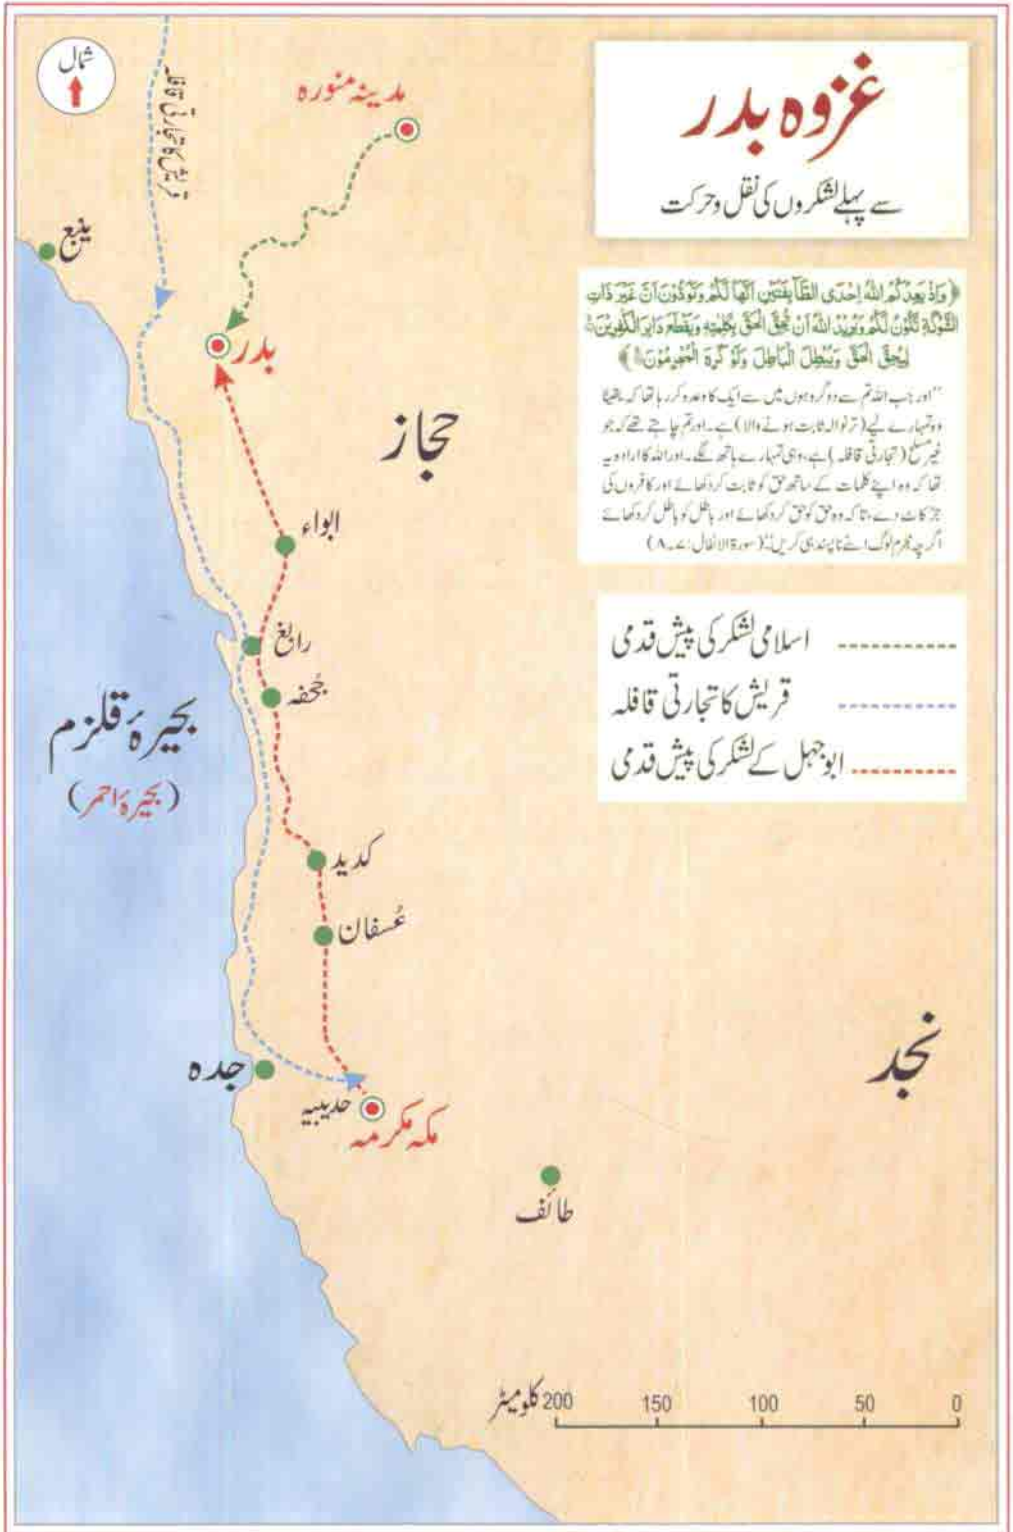 غزوہ بدر
سے پہلے لشکروں کی نقل و حرکت
﴿وَاِذْ يَعِدُكُمُ اللّٰهُ اِحْدَى الطَّآىِٕفَتَيْنِ اَنَّهَا لَكُمْ وَتَوَدُّوْنَ اَنَّ غَيْرَ ذَاتِ
الشَّوْكَةِ تَكُوْنُ لَكُمْ وَيُرِيْدُ اللّٰهُ اَنْ يُّحِقَّ الْحَقَّ بِكَلِمٰتِهٖ وَيَقْطَعَ دَابِرَ الْكٰفِرِيْنَ
لِيُحِقَّ الْحَقَّ وَيُبْطِلَ الْبَاطِلَ وَلَوْ كَرِهَ الْمُجْرِمُوْنَ﴾
"اور جب اللہ تم سے دو گروہوں میں سے ایک کا وعدہ کر رہا تھا کہ یقیناً
وہ تمہارے لیے (تر نوالہ ثابت ہونے والا) ہے۔ اور تم چاہتے تھے کہ جو
غیر مسلح (تجارتی قافلہ) ہے، وہی تمہارے ہاتھ لگے۔ اور اللہ کا ارادہ یہ
تھا کہ وہ اپنے کلمات کے ساتھ حق کو ثابت کر دکھائے اور کافروں کی
جڑ کاٹ دے، تاکہ وہ حق کو حق کر دکھائے اور باطل کو باطل کر دکھائے
اگرچہ مجرم لوگ اسے ناپسند ہی کریں۔" (سورۃ الانفال: ۷۔۸)
اسلامی لشکر کی پیش قدمی
قریش کا تجارتی قافلہ
ابوجہل کے لشکر کی پیش قدمی
شمال
قریش کا تجارتی قافلہ
مدینہ منورہ
ینبع
بدر
حجاز
ابواء
رابغ
جُحفہ
بحیرۂ قلزم
(بحیرۂ احمر)
کدید
عُسفان
نجد
جدہ
حدیبیہ
مکہ مکرمہ
طائف
0 50 100 150 200 کلومیٹر